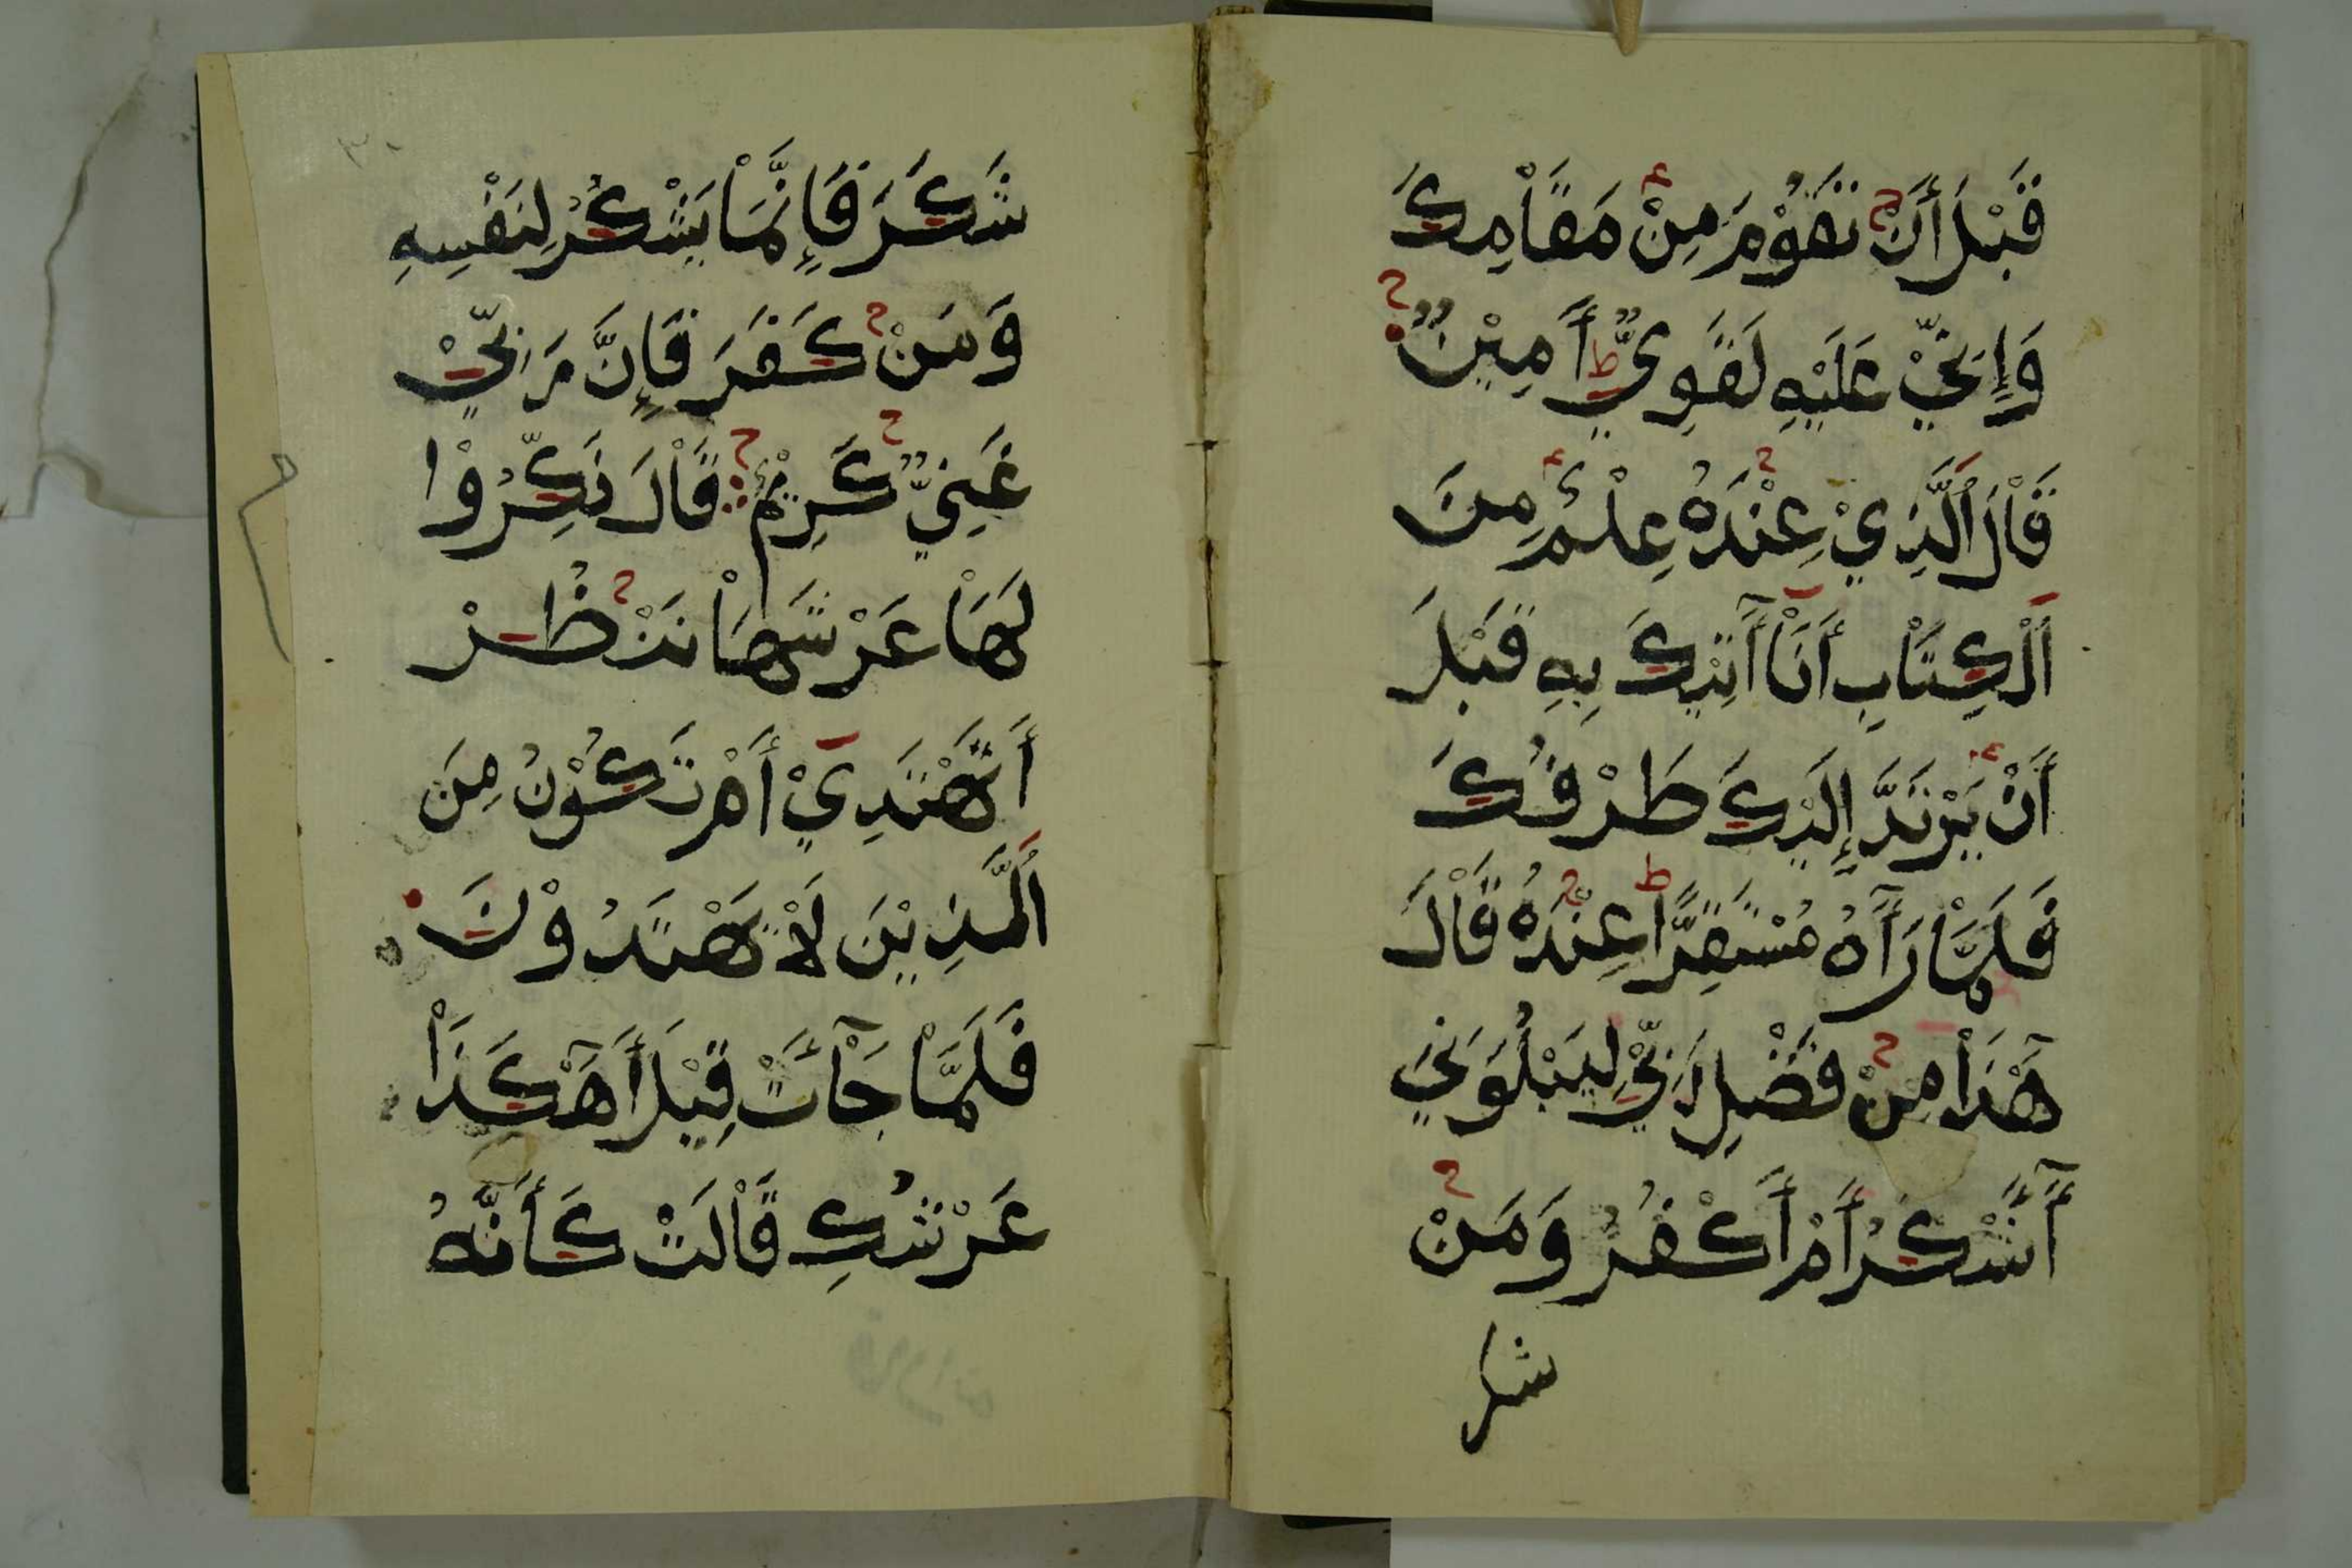 قَبْلَ أَنْ تَقُوْمَ مِنْ مَقَاْمِكَ
وَإِنِّيْ عَلَيْهِ لَقَوِيٌّ أَمِيْنٌ
قَاْلَ اَلَّذِيْ عِنْدَهُ عِلْمٌ مِنَ
اَلْكِتَاْبِ أَنَاْ آتِيْكَ بِهِ قَبْلَ
أَنْ يَرْتَدَّ إِلَيْكَ طَرْفُكَ
فَلَمَّاْ رَآَهُ مُسْتَقِرًّا عِنْدَهُ قَاْلَ
هَٓذَاْ مِنْ فَضْلِ رَبِّيْ لِيَبْلُوَنِيْ
أَٓأَشْكُرُ أَمْ أَكْفُرُ وَمَنْ
شكر
شَكَرَ فَإِنَّمَاْ يَشْكُرُ لِنَفْسِهِ
وَمَنْ كَفَرَ فَإِنَّ رَبِّيْ
غَنِيٌّ كَرِيْمٌ قَاْلَ نَكِّرُوْا
لَهَاْ عَرْشَهَاْ نَنْظُرْ
أَتَهْتَدِيْ أَمْ تَكُوْنُ مِنَ
اَلَّذِيْنَ لَاْ يَهْتَدُوْنَ
فَلَمَّاْ جَآْئَتْ قِيْلَ أَهَٓكَذَاْ
عَرْشُكِ قَاْلَتْ كَأَنَّهُ